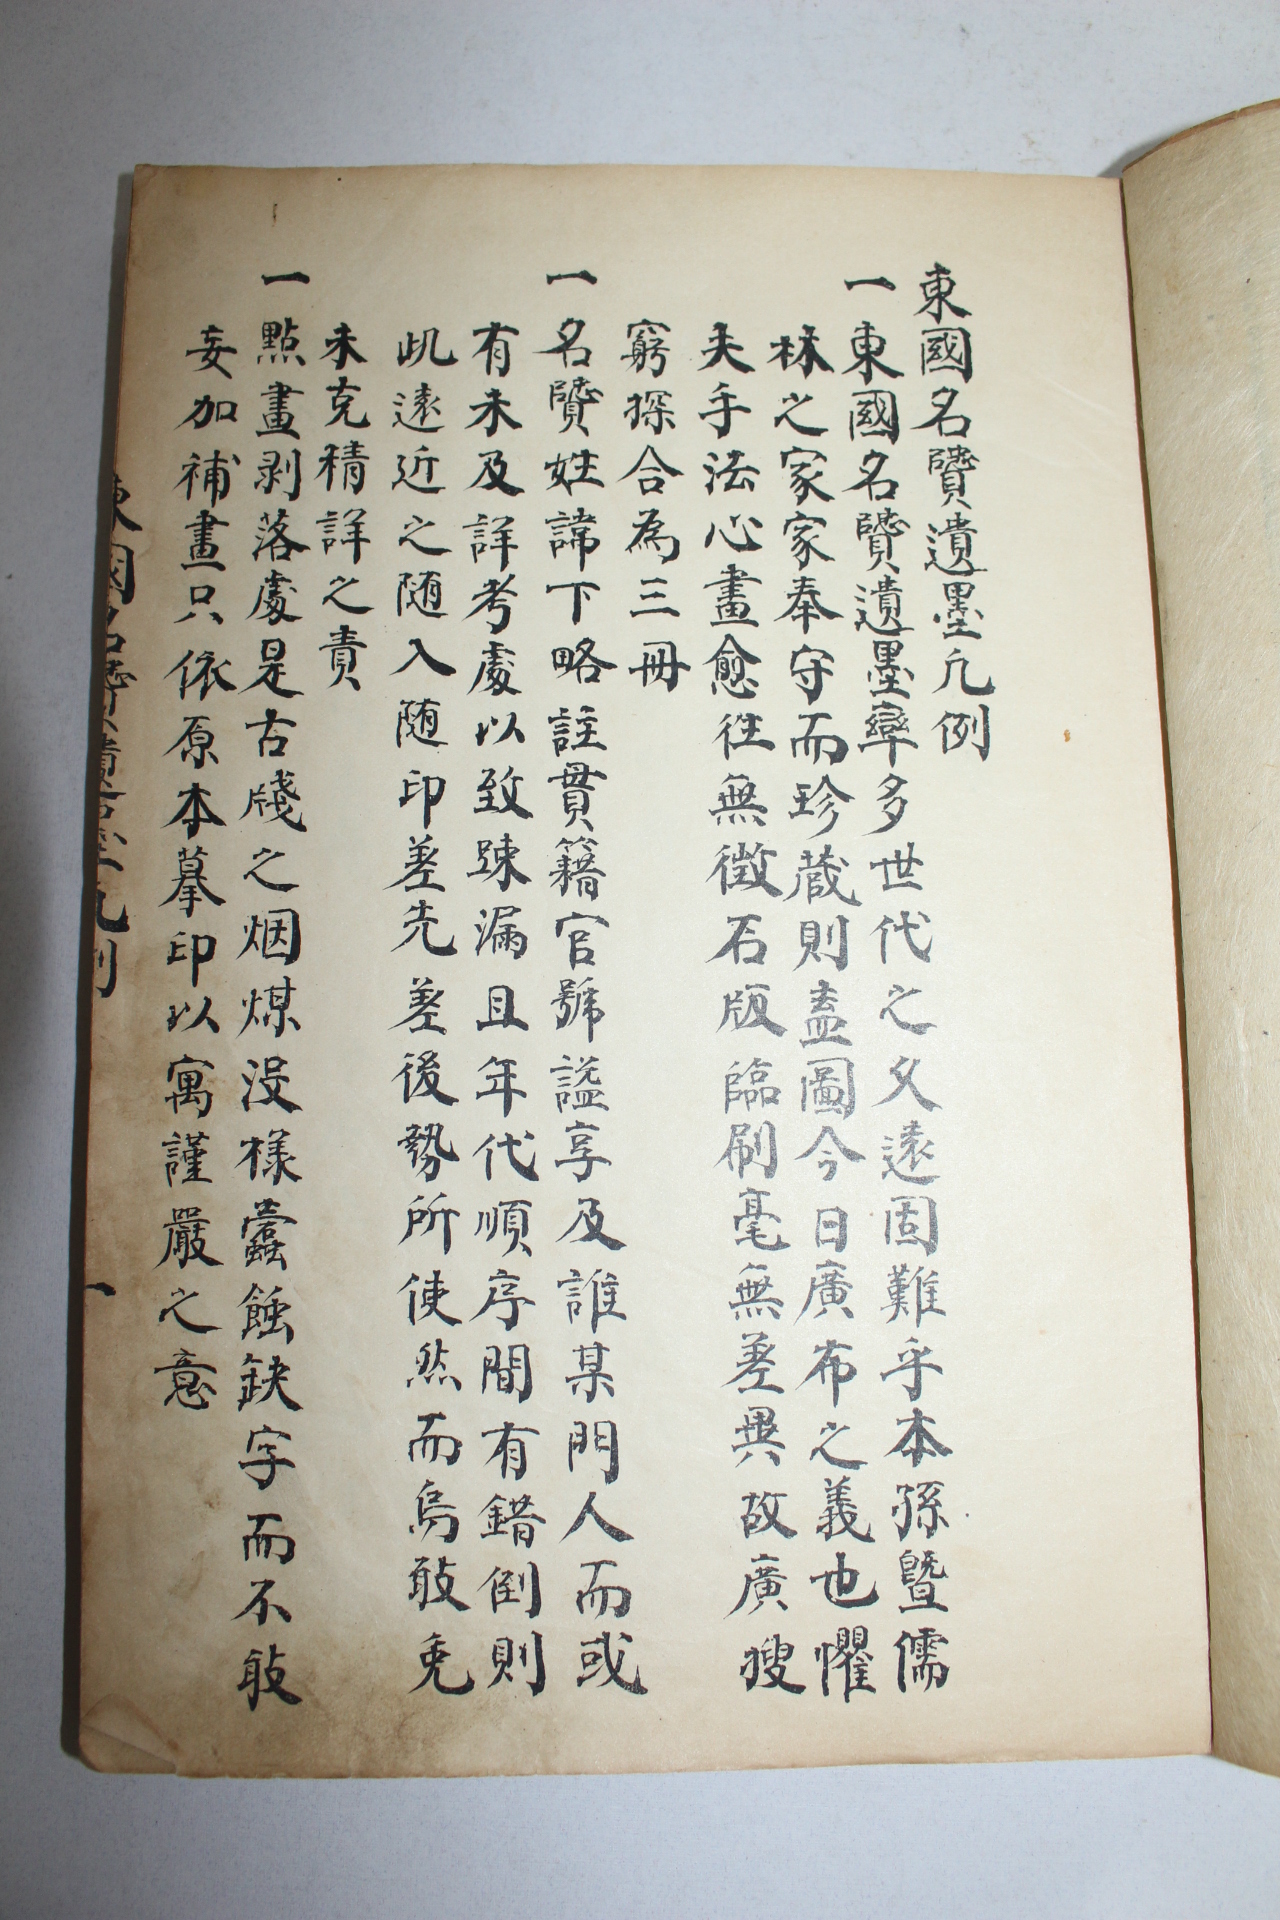 東國名賢遺墨凡例
一東國名賢遺墨率多世代之久遠固難乎本孫曁儒
林之家家奉守而珍蔵則盍圖今日廣布之義也懼
夫手法心畫愈往無徴石版臨刷毫無差異故廣搜
窮探合為三冊
一名賢姓諱下略註貫籍官號諡享及誰某門人而或
有未及詳考處以致踈漏且年代順序間有錯倒則
此遠近之随入随印差先差後勢所使然而烏敢免
未克精詳之責
一點畫剥落處是古牋之烟煤沒樣蠹蝕缺字而不敢
妄加補畫只依原本摹印以寓謹嚴之意
東國名賢遺墨凡例 一